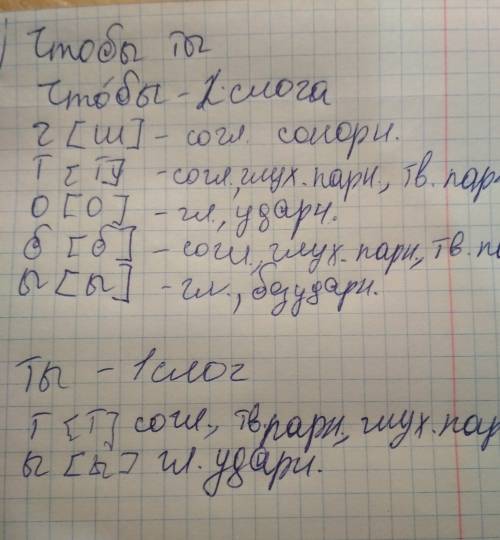 ) Чтобы ты
Что́бы - 2 слога
ч [ш] - согл. сонорн.
Т [Т] - согл., глух. парн., тв. пар
О [О] - гл., ударн.
б [б] - согл., глух. парн., тв. па
ы [ы] - гл., безударн.
ты - 1 слог
Т [Т] согл., тв парн., глух. пар
ы [ы] гл. ударн.